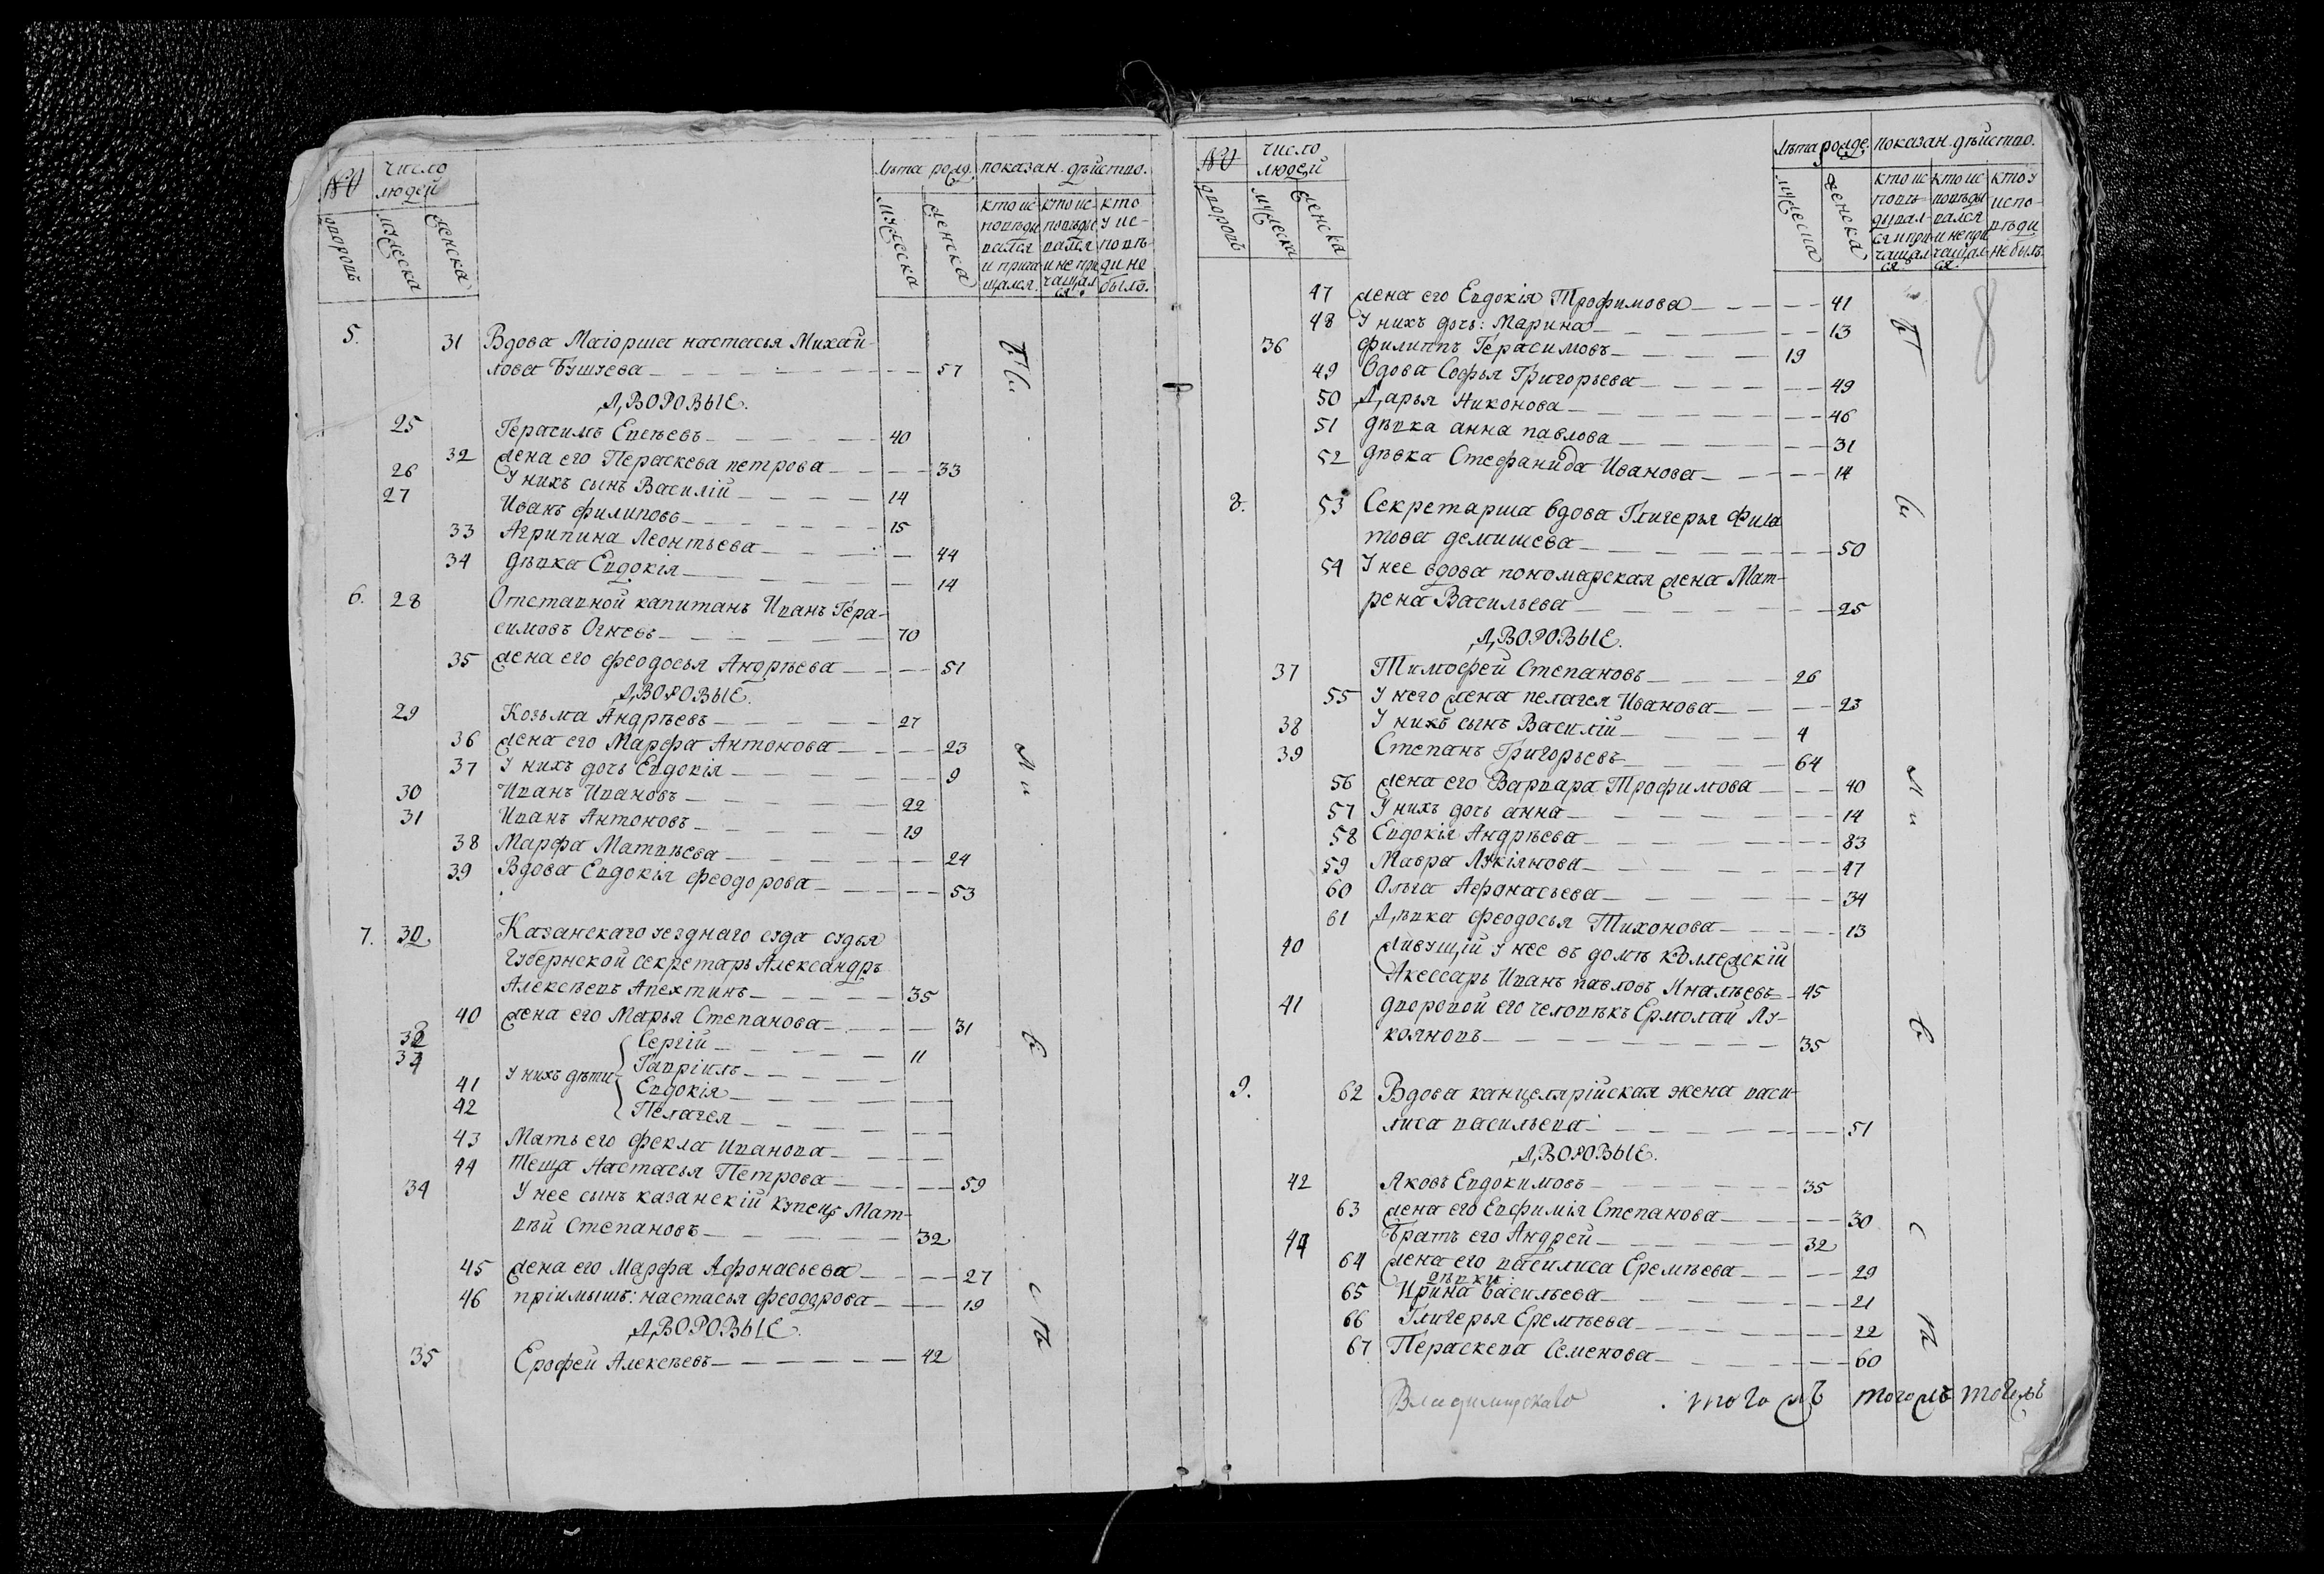 №
число людей
лѣта рожд.
показан. дѣйство.
дворовъ
мужеска
женска
мужеска
женска
кто исповѣдывался и причащался.
кто исповѣдывался и не причащался.
кто у исповѣди не былъ.
5. 31 Вдова Маіорша настасья Михай-
лова 57
ДВОРОВЫЕ.
25 Герасимъ Евсѣевъ 40
32 жена его Пераскева петрова 33
26 У нихъ сынъ Василій 14
27 Иванъ филиповъ 15
33 Агрипина Леонтьева 44
34 дѣвка Евдокія 14
6. 28 Отставной капитанъ Иванъ Гера-
симовъ Огневъ 70
35 жена его феодосья Андрѣева 51
ДВОРОВЫЕ.
29 Козьма Андрѣевъ 27
36 жена его Марфа Антонова 23
37 У нихъ дочь Евдокія 9
30 Иванъ Ивановъ 22
31 Иванъ Антоновъ 19
38 Марфа Матвѣева 24
39 Вдова Евдокія феодорова 53
7. Казанскаго уезднаго суда судья
Губернской секретарь Александръ
Алексѣевъ Апехтинъ 35
40 жена его Марья Степанова 31
Сергій 11
У нихъ дѣти Гавріилъ
41 Евдокія
42 Пелагея
43 Мать его фекла Иванова
44 Теща Настасья Петрова 59
34 У нее сынъ казанскій купецъ Мат-
вѣй Степановъ 32
45 жена его Марфа Афонасьева 27
46 пріимышъ: настасья феодорова 19
ДВОРОВЫЕ.
35 Ерофей Алексѣевъ 42
№
число людей
лѣта рожде.
показан. дѣйство.
дворовъ
мужеска
женска
мужеска
женска
кто исповѣдывался и причащался.
кто исповѣдывался и не причащался.
кто у исповѣди не былъ.
47 жена его Евдокія Трофимова 41
48 У нихъ дочь: Марина 13
36 филиппъ Герасимовъ 19
49 Вдова Софья Григорьева 49
50 Дарья Никонова 46
51 дѣвка анна павлова 31
52 дѣвка Стефанида Иванова 14
8. 53 Секретарша вдова Гликерья Фила
това демишева 50
54 У нее вдова пономарская жена Мат-
рена Васильева 25
ДВОРОВЫЕ.
37 Тимофей Степановъ 26
55 У него жена пелагея Иванова 23
38 У нихъ сынъ Василій 4
39 Степанъ Григорьевъ 64
56 жена его Варвара Трофимова 40
57 У нихъ дочь анна 14
58 Евдокія Андрѣева 83
59 Мавра Лукіянова 47
60 Ольга Афонасьева 34
61 Дѣвка феодосья Тихонова 13
40 живущій у нее въ домѣ коллежскій
Акессаръ Иванъ павловъ 45
41 дворовой его человѣкъ Ермолай Лу-
кояновъ 35
9. 62 Вдова канцелярійская жена васи-
лиса васильева 51
ДВОРОВЫЕ.
42 Яковъ Евдокимовъ 35
63 жена его Евфимія Степанова 30
Братъ его Андрей 32
64 жена его василиса Еремѣева 29
дѣвки:
65 Ирина васильева 21
66 Гликерья Еремѣева 22
67 Пераскева Семенова 60